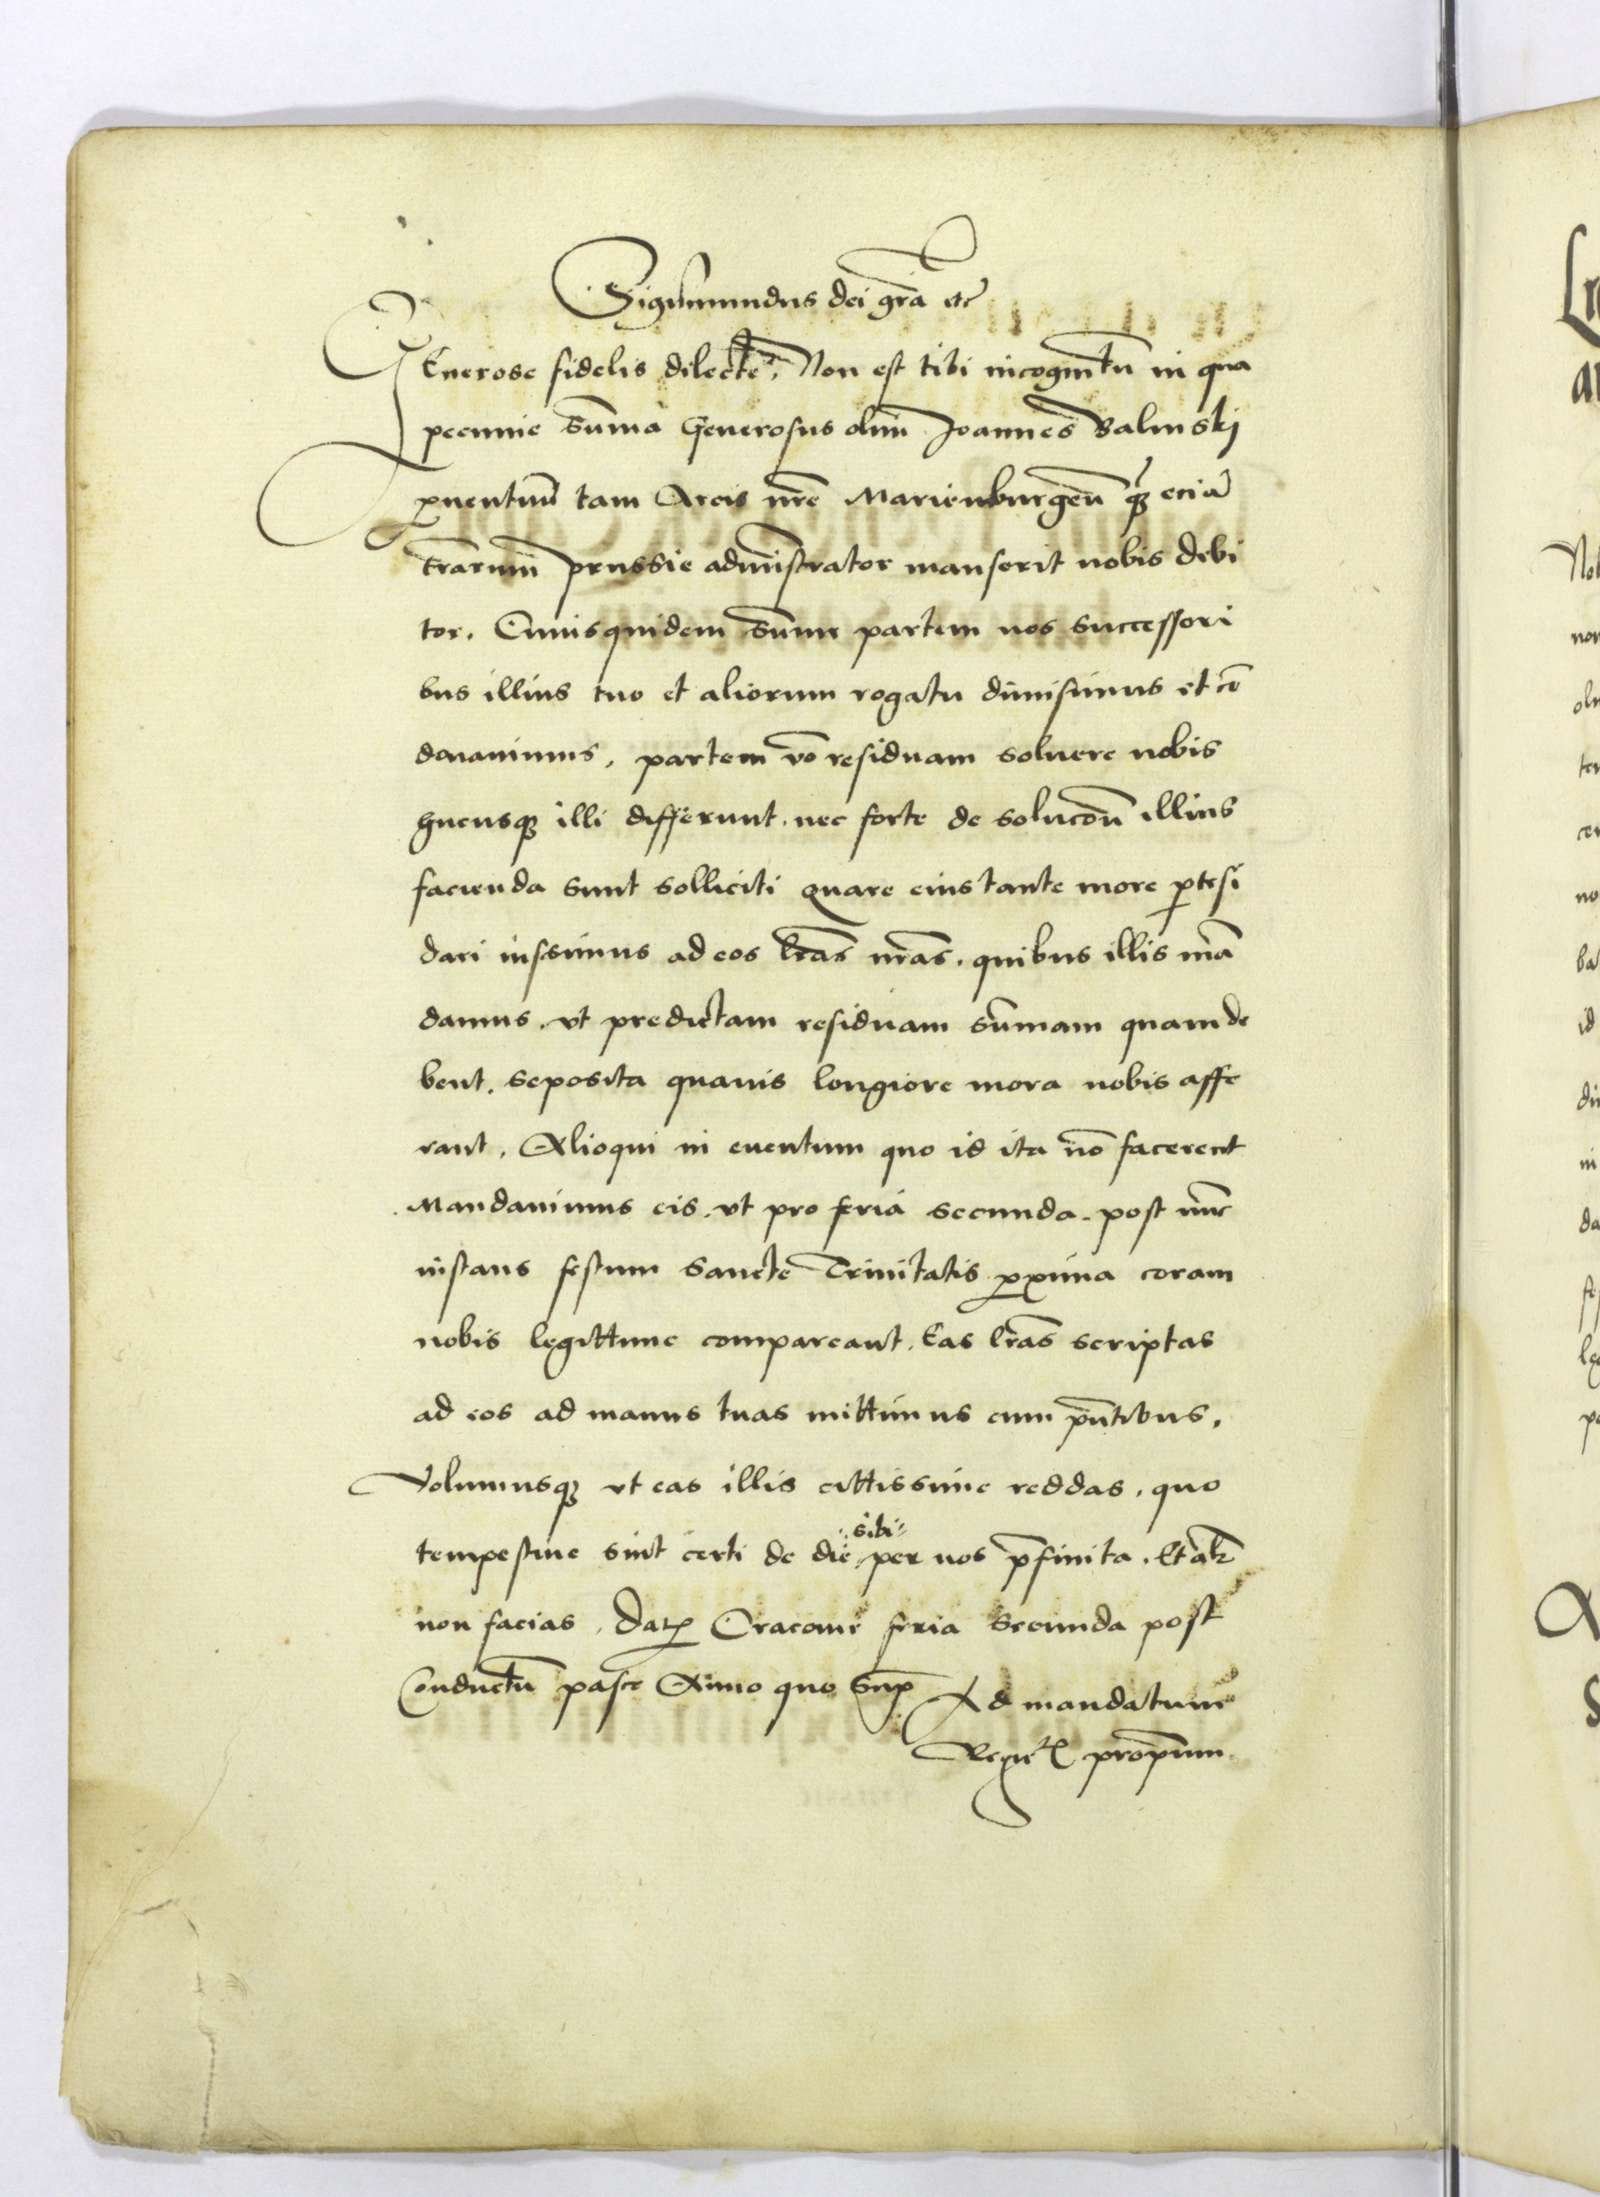 Sigismundus dei gra etc
GEnerose fidelis dilecte, Non est tibi incognitu in qua
pecunie suma Generosus olim Joannes Balinskj
puentuu tam Arcis nre Marienburgen qz ecia
trarum prussie administrator manserit nobis debi
tor. Cuius quidem sume partem nos successori
bus illius tuo et aliorum rogatu dimisimus et co
donauimus, partem vo residuam soluere nobis
hucusqz illi differunt. nec forte de solucon illius
facienda sunt solliciti quare eius tante more ptesi
dari iussimus ad eos lras nras. quibus illis ma
damus. vt predictam residuam sumam quam de
bent. seposita quauis longiore mora nobis affe
rant. Alioqui in euentum quo id ita no facerent
Mandauimus eis. vt pro feria secunda. post nunc
instans festum Sancte Trinitatis pxima coram
nobis legittime compareant. Eas lras scriptas
ad eos ad manus tuas mittimus cum pntibus.
Volumusqz vt eas illis cittissime reddas. quo
tempestiue sint certi de die sibi per nos pfinita. Et alr
non facias. Datz Cracouie feria secunda post
Conductu pasce Anno quo Sup
Ad mandatum
Regie proprium

Not
non
olu
ter
cer
no
ba
id
din
in
da
fe
leg
pa